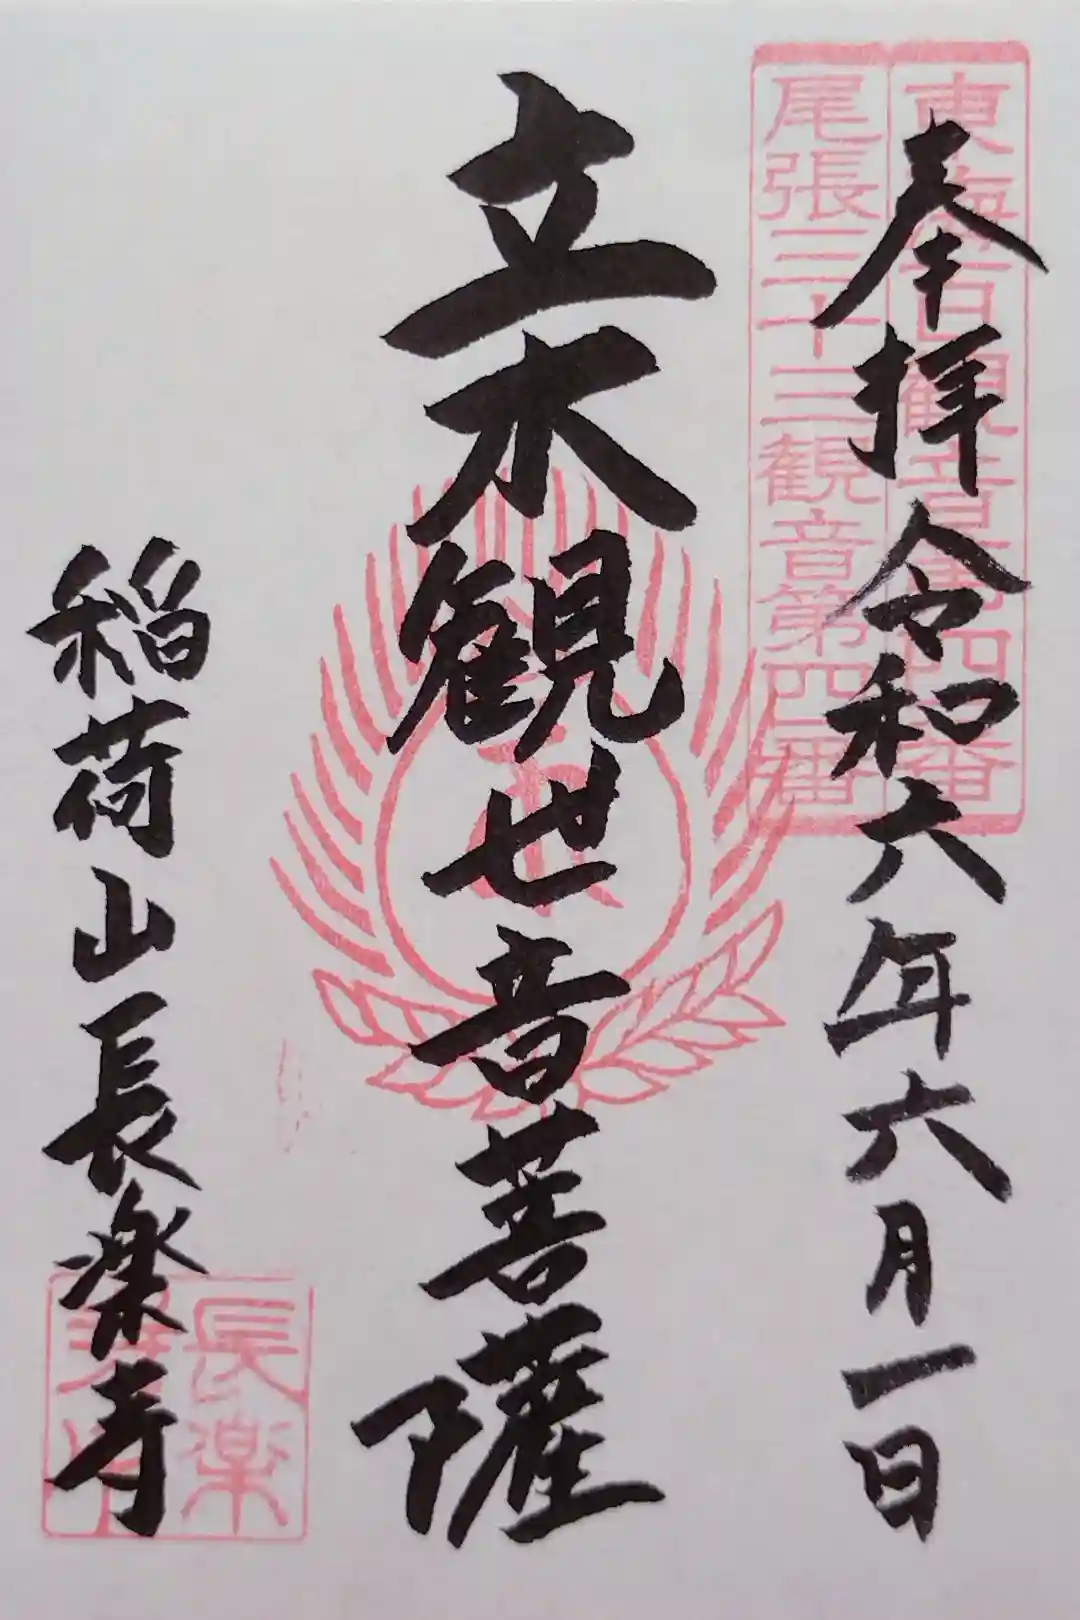 奉拝 令和六年六月一日
東海百観音第四番
尾張三十三観音第四番
立木観世音菩薩
稲荷山長楽寺
長楽